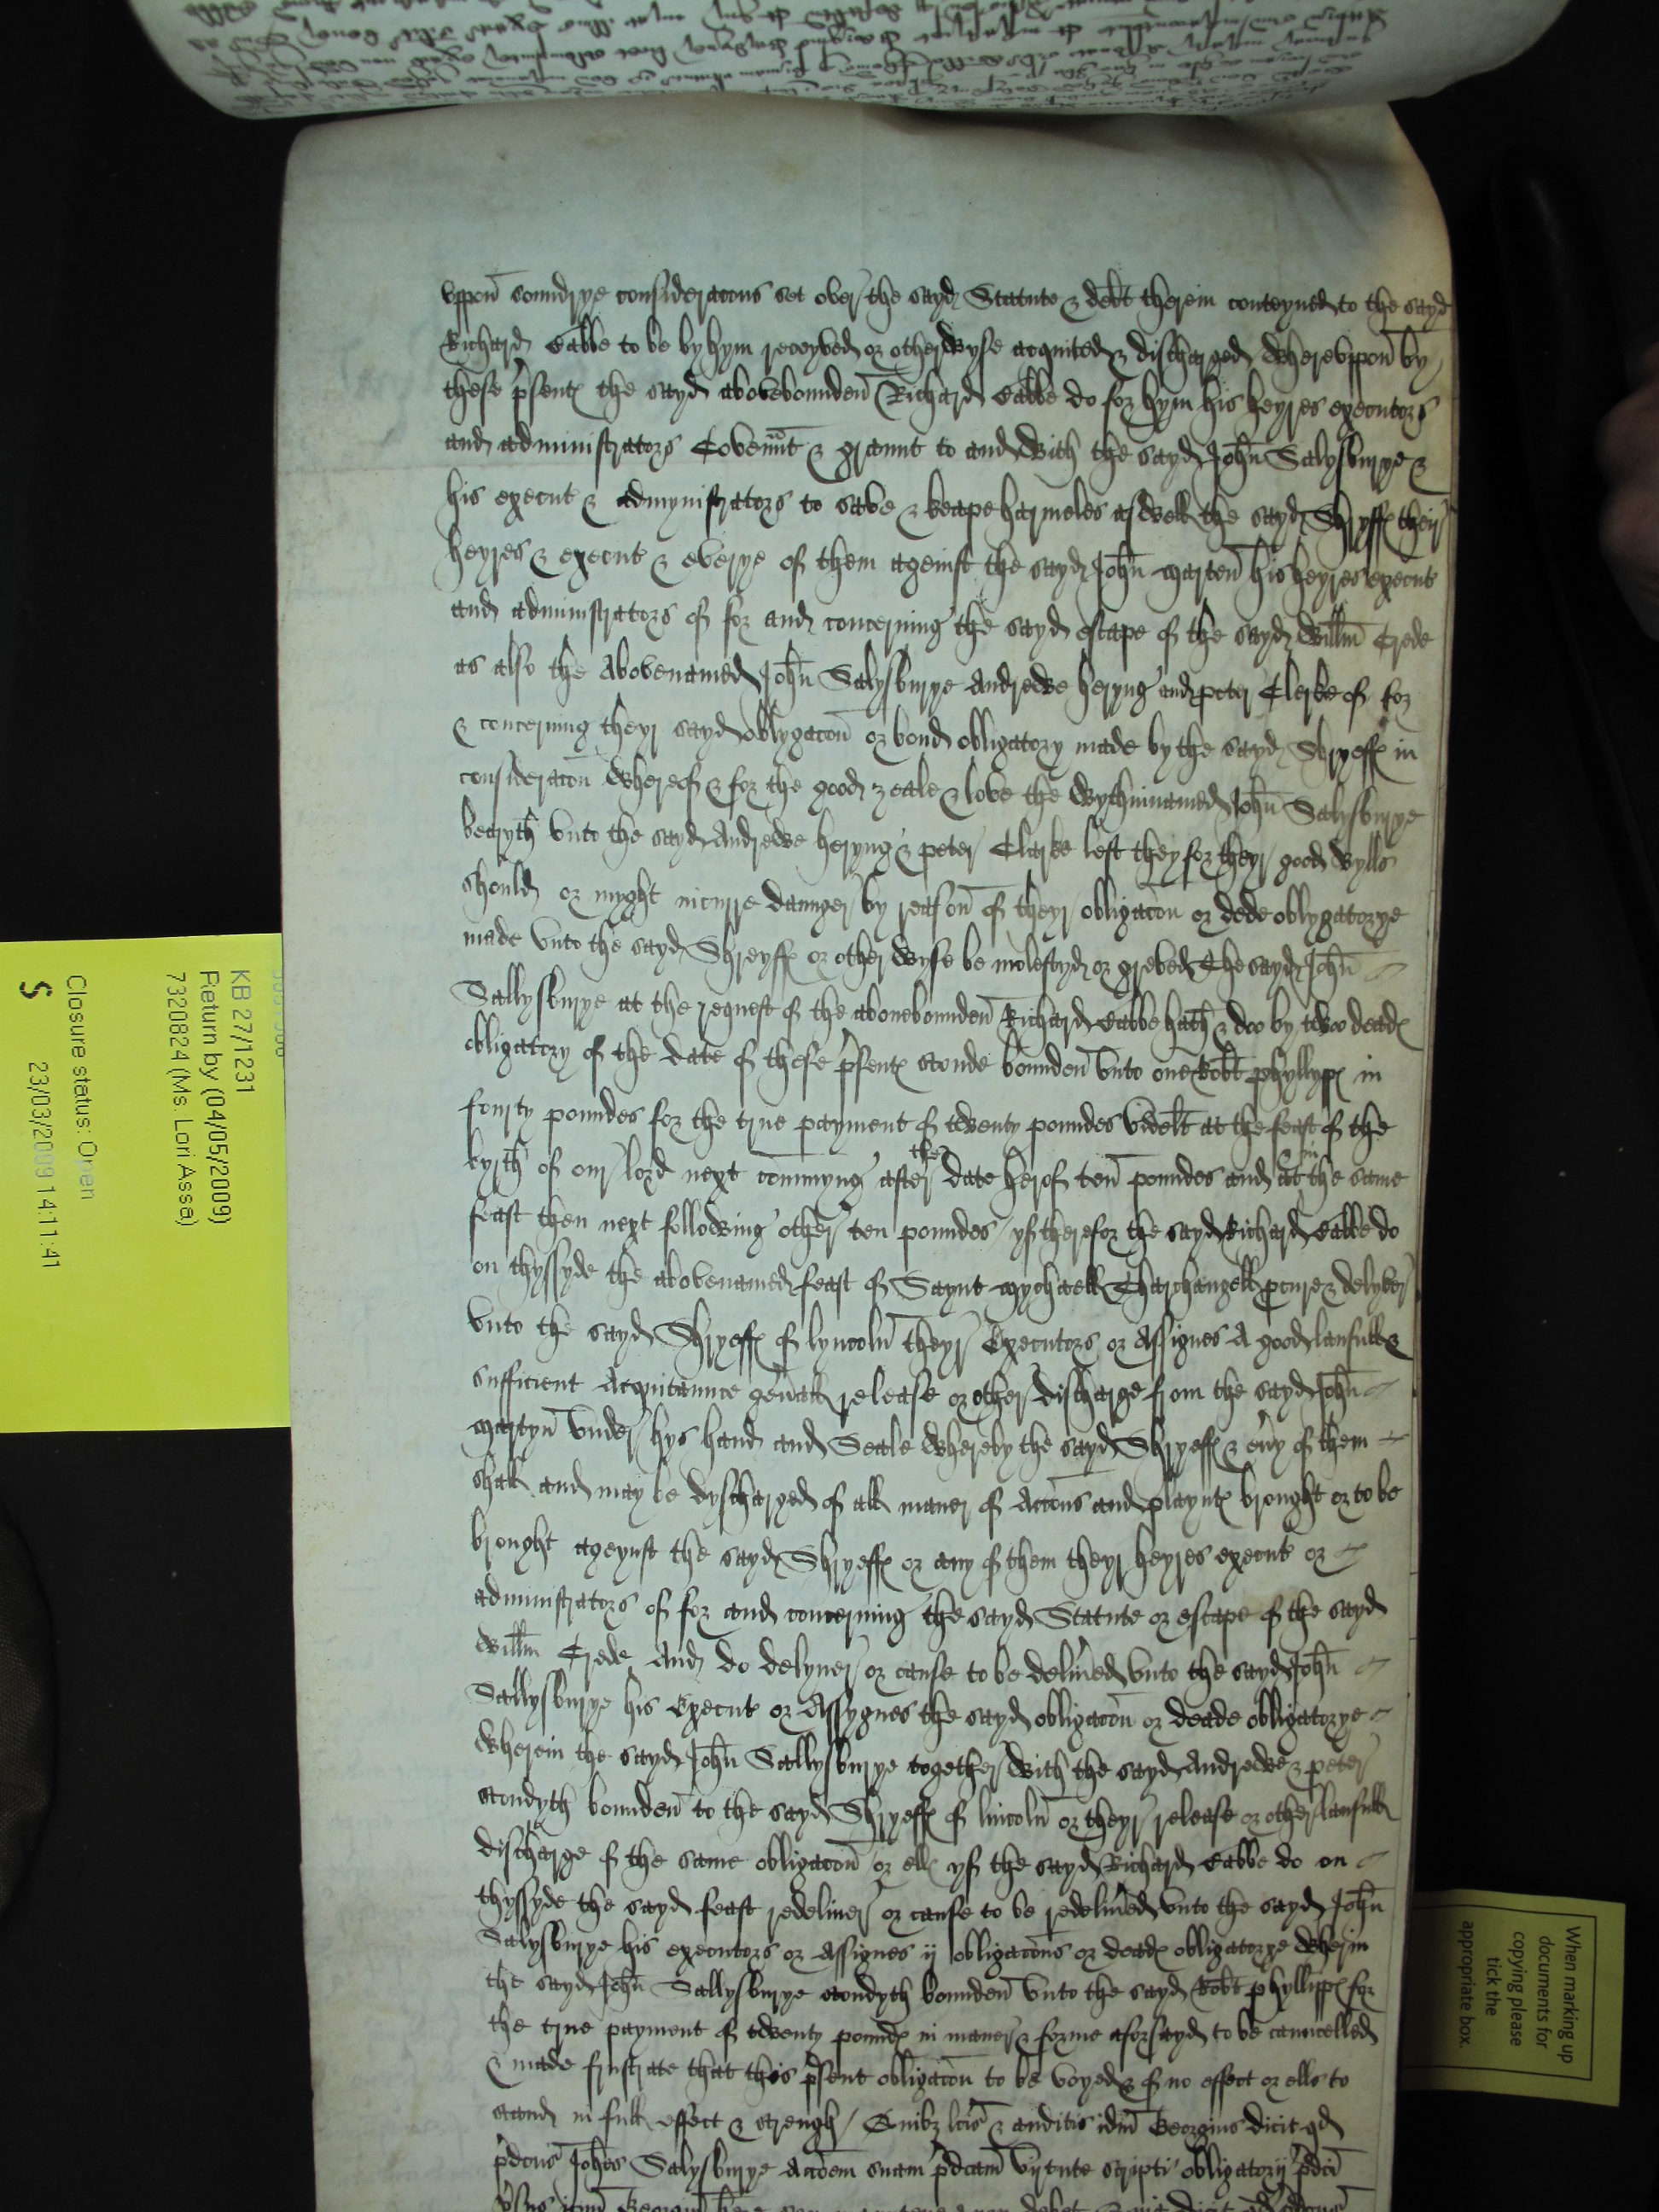 vppon soundrye consideracons set over the sayd Statute & debt therein conteyned to the sayd
Richard Cabbe to be by hym receyved or otherwyse acquited & discharged wherevppon by
these psent the sayd abovebounden Richard Cabbe do for hym his heyres executors
and administrators Covennt & graunt to and with the sayd John Salysburye &
his execut & admynistrators to save & keape harmeles aswell the sayd Shryeff their
heyres & execut & everye of them ageinst the sayd John Marten his heyres execut
and administrators of for and concerning the sayd escape of the sayd Willm Crede
as also the Abovenamed John Salysburye Andrewe Heryng and peter Clerke of for
& concerning theyr sayd oblygacon or bond obligatory made by the sayd Shryeff in
consideracon wherof & for the good zeale & love the wythinnamed John Salysburye
bearyth vnto the sayd Andrewe heryng & peter Clarke lest they for theyr good wylls
should or myght incurre daunger by reason of theyr obligacon or dede oblygatorye
made vnto the sayd Shreyff or otherwyse be molestyd or greved The sayd John
Sallysburye at the request of the abovebounden Richard Cabbe hath & doo by twoo dead
obligatory of the date of these psent stonde bounden vnto one Robt phyllyp in
fourty poundes for the true payment of twenty poundes videlt at the feast of the
byrth of our lord next commyng after the date herof ten poundes and at in the same
feast then next following other ten poundes / yf therefor the sayd Richard Cabbe do
on thyssyde the abovenamed feast of Saynt mychaell Tharchangell pcure & delyver
vnto the sayd Shryeff of lyncoln theyr Executors or Assignes A good laufull &
sufficient Acquitaunce genall release or other discharge from the sayd John
Martyn vnder hys hand and Seale whereby the sayd Shryeff & evy of them
shall and may be dyscharged of all maner of Accons and playnt brought or to be
brought ageynst the sayd Shryeff or any of them theyr heyres execut or
administrators of for and concerning the sayd Statute or escape of the sayd
Willm Crede And do delyuer or cause to be delived vnto the sayd John
Sallysburye his Execut or Assygnes the sayd obligacon or deade obligatorye
wherein the sayd John Sallysburye together with the sayd Andrewe & peter
stondyth bounden to the sayd Shryeff of lincoln or theyr release or other laufull
discharge of the same obligacon or ell yf the sayd Richard Cabbe do on
thyssyde the sayd feast redeliuer or cause to be redelived vnto the sayd John
Salysburye his executors or Assignes ij obligacons or dead obligatorye wherin
the sayd John Sallysburye stondyth bounden vnto the sayd Robt phyllipp for
the true payment of twenty pound in maner & forme aforsayd to be cauncelled
& made frustrate that this psent obligacon to be voyed & of no effect or ells to
stand in full effect & strengh / Quibz lcis & auditis idm Georgius dicit qd
pdcus Johes Salysburye Accoem suam pdcam virtute scripti obligatorij pdci
KB 27/1231
Return by (04/05/2009)
7320824 (Ms. Lori Assa)
Closure status: Open
S
23/03/2009 14:11:41
When marking up
documents for
copying please
tick the
appropriate box.